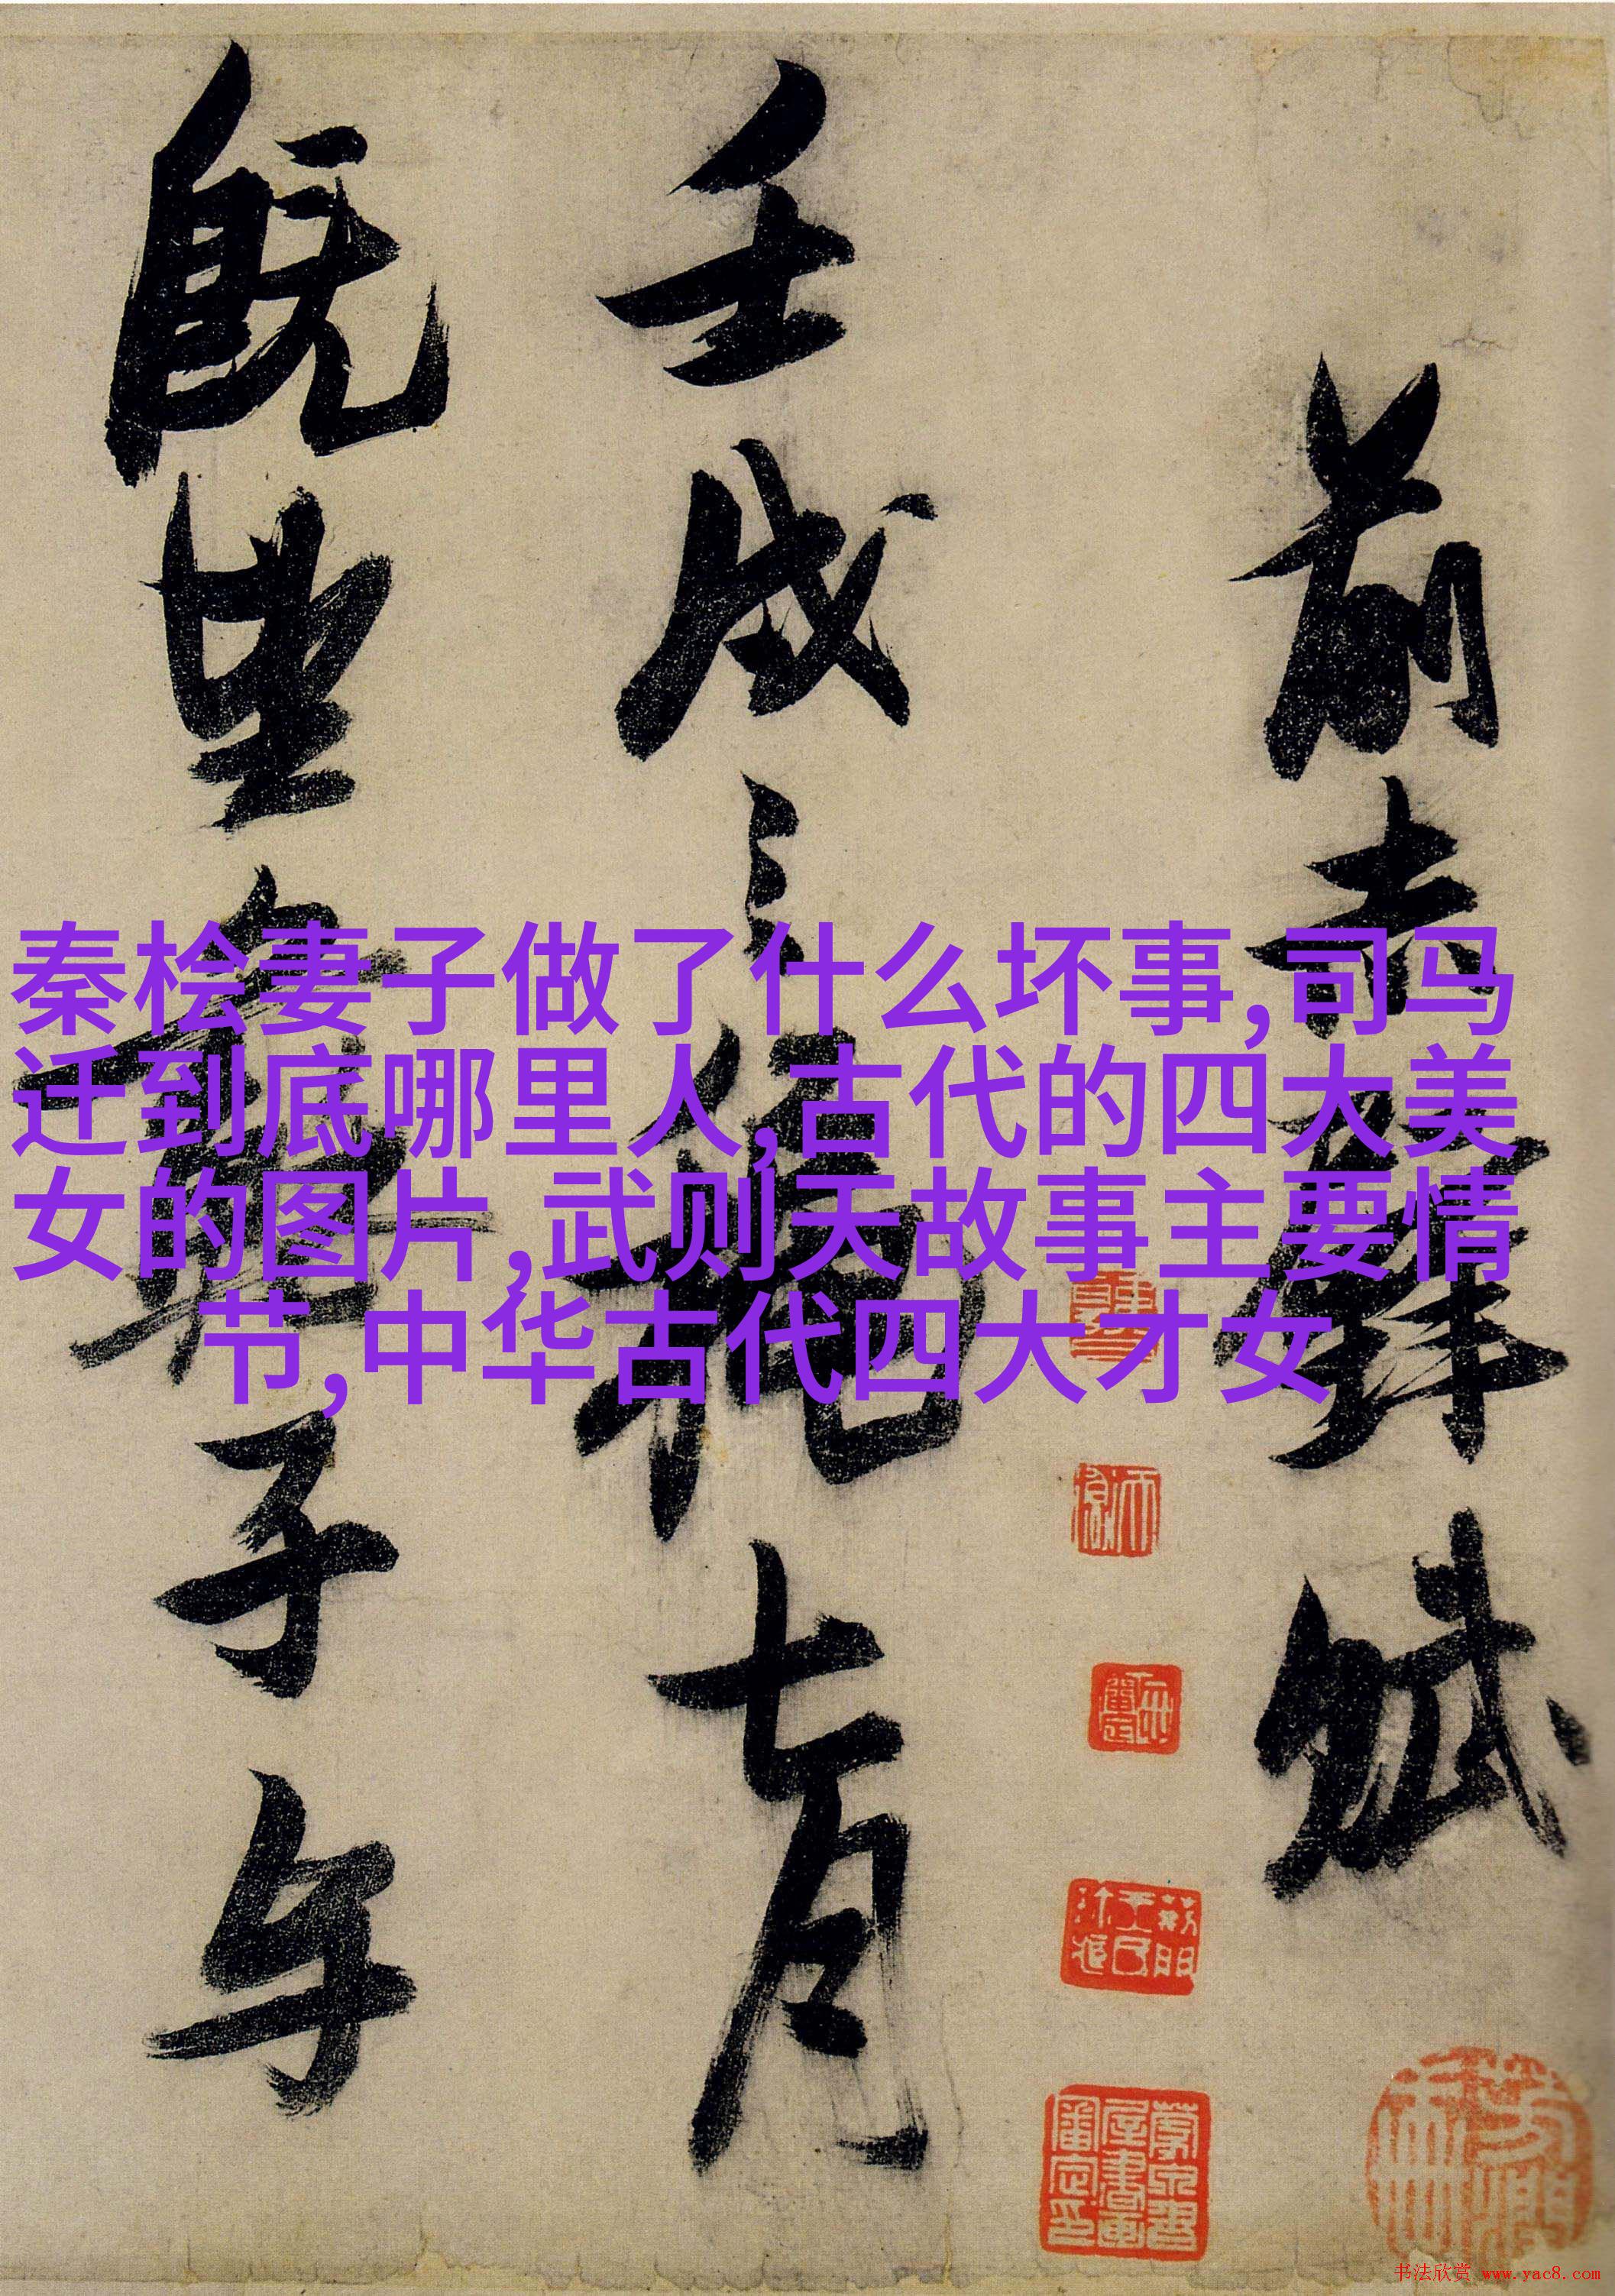 前赤壁赋
壬戌之秋七月
既望苏子与
秦桧妻子做了什么坏事,司马
迁到底哪里人,古代的四大美
女的图片,武则天故事主要情
节,中华古代四大才女
书法欣赏 www.yac8.com